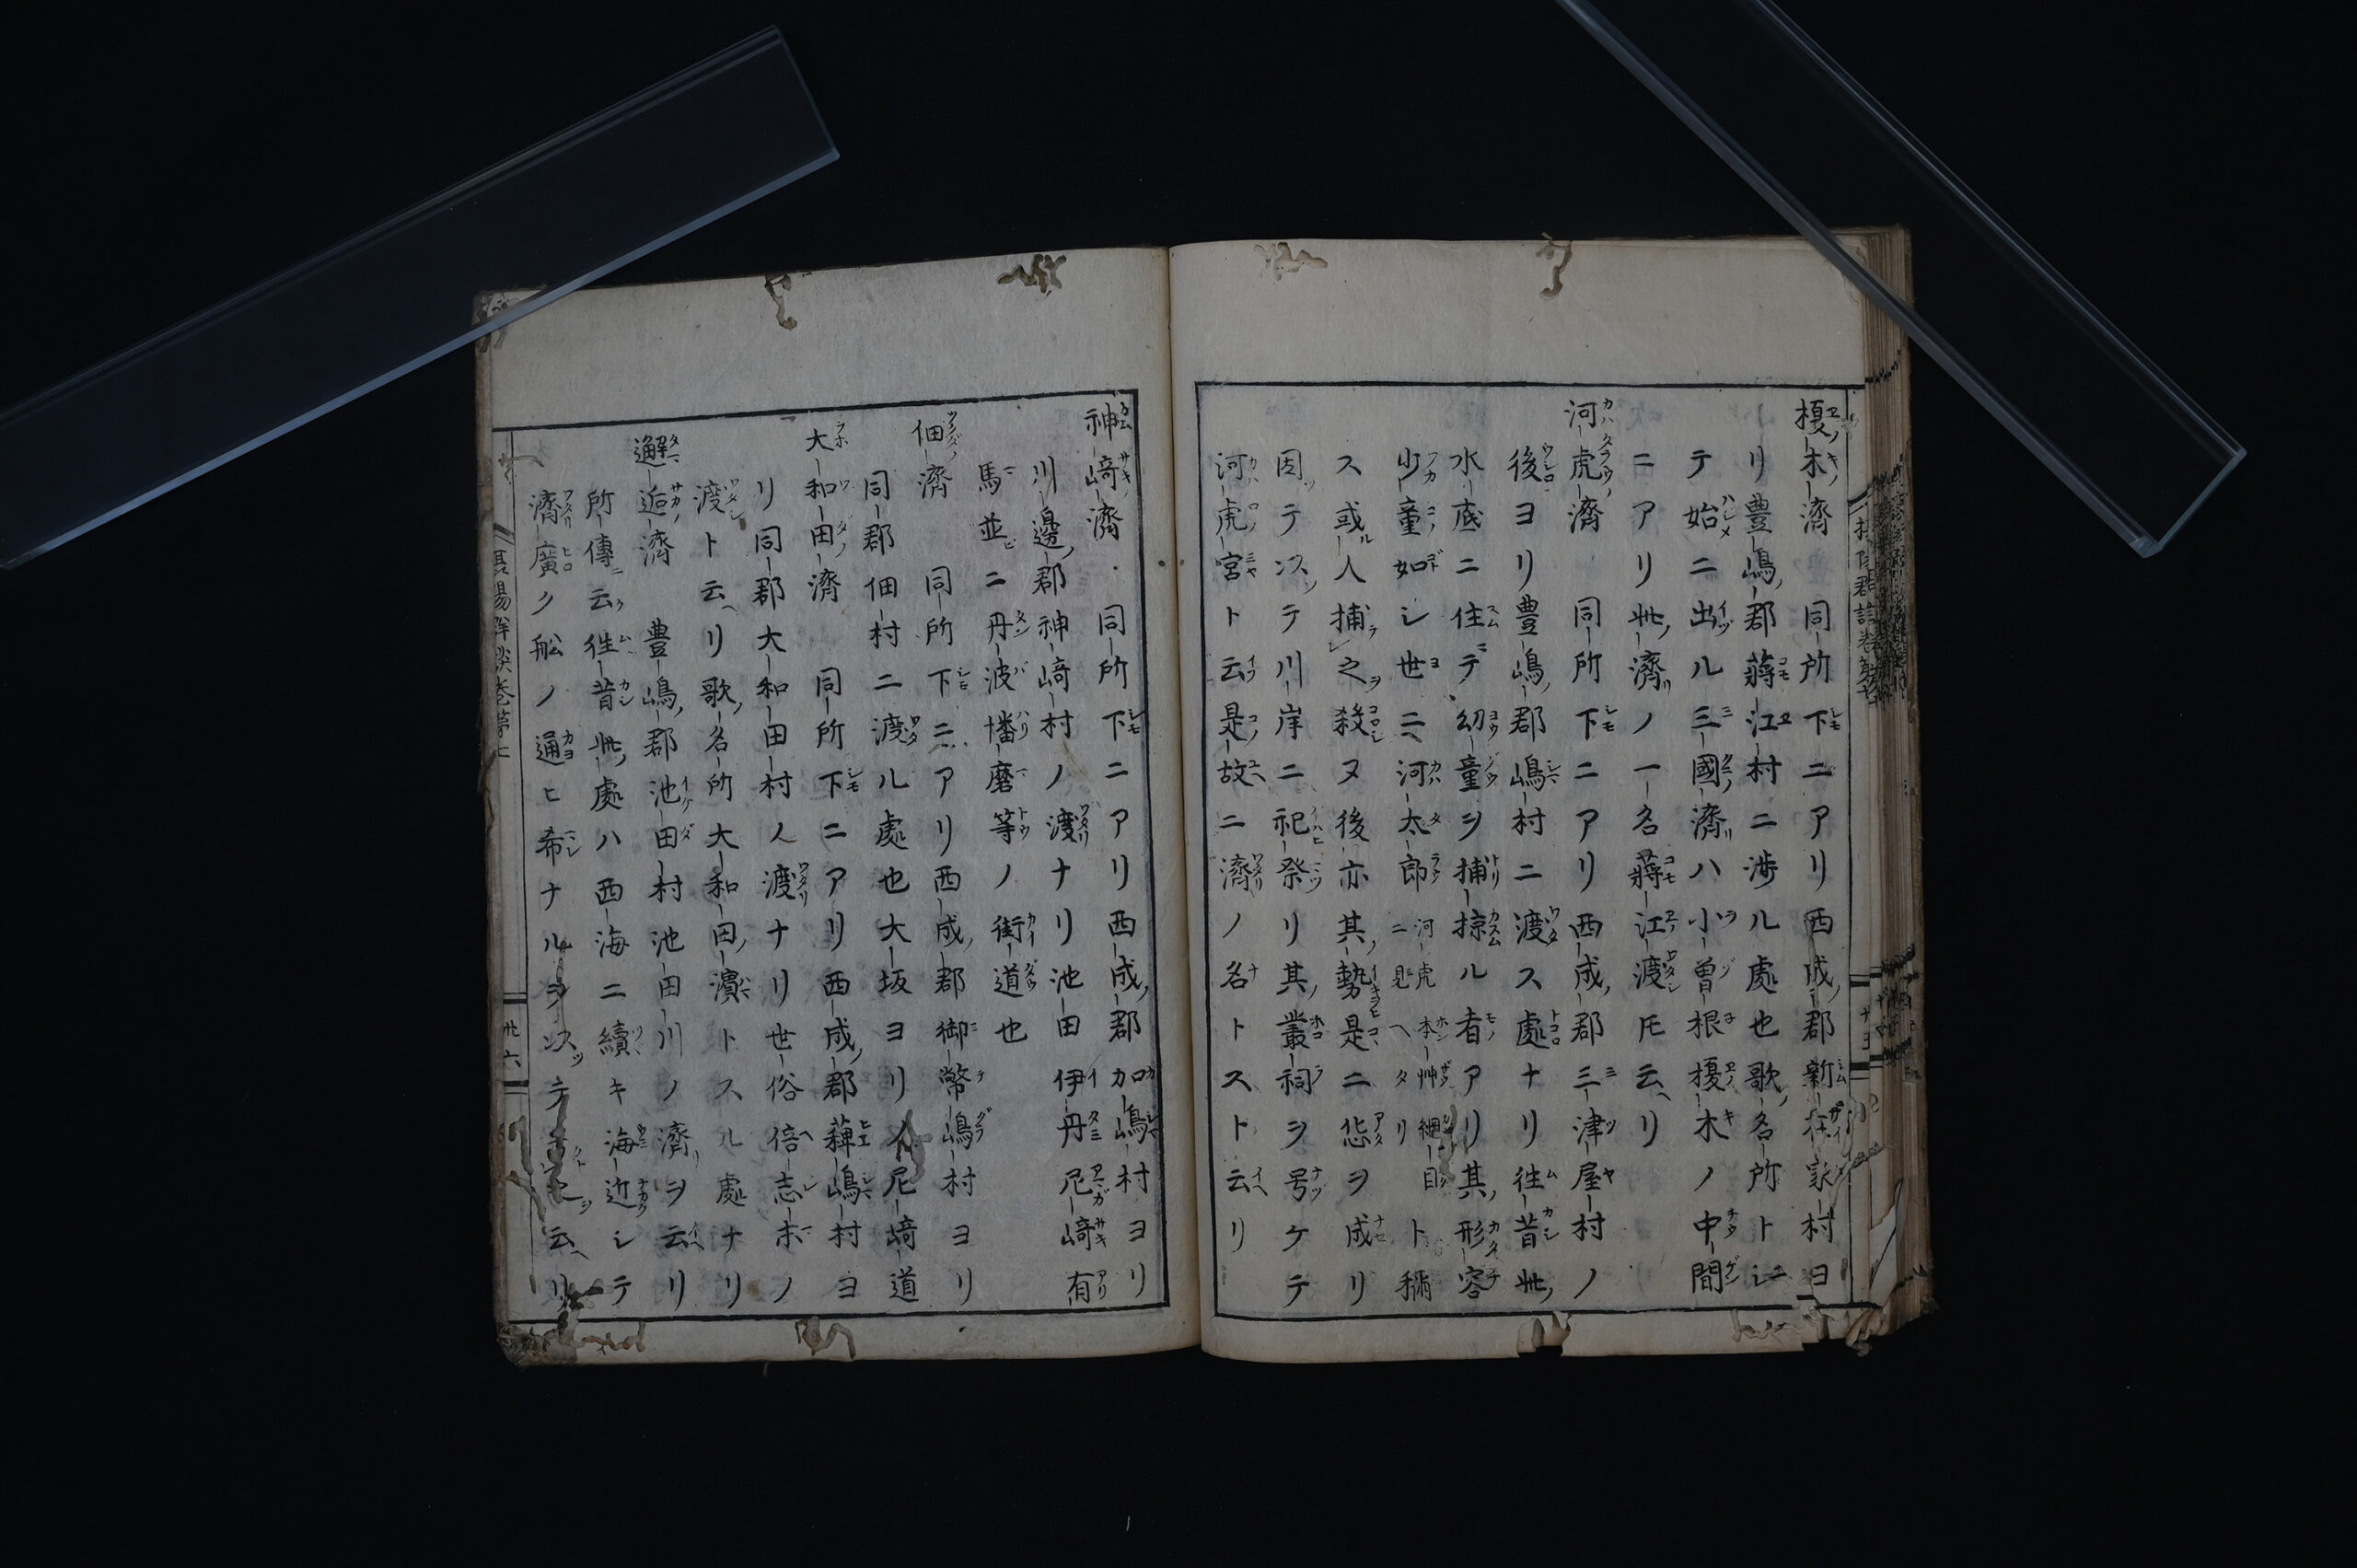 榎木濟 同所下ニアリ西成郡新在家村ヨ
リ豊嶋郡蒋江村ニ渉ル處也歌名所トシ
テ始ニ出ル三國濟ハ小曽根榎木ノ中間
ニアリ此濟ノ一名蒋江渡モ云リ
河虎濟 同所下ニアリ西成郡三津屋村ノ
後ヨリ豊嶋郡嶋村ニ渡ス處ナリ往昔此
水底ニ住テ幼童ヲ捕掠ル者アリ其形容
少童如シ世ニ河太郎 河虎本艸綱目ト稱
ニ見ヘタリ
ス或人捕之殺ヌ後亦其勢是ニ恠ヲ成リ
因テ次テ川岸ニ祀祭リ其叢祠ヲ号ケテ
河虎宮ト云是故ニ濟ノ名トスト云リ
神﨑濟 同所下ニアリ西成郡加嶋村ヨリ
川邊郡神﨑村ノ渡ナリ池田伊丹尼﨑有
馬並ニ丹波播磨等ノ街道也
佃濟 同所下ニアリ西成郡御幣嶋村ヨリ
同郡佃村ニ渡ル處也大坂ヨリノ尼﨑道
大和田濟 同所下ニアリ西成郡稗嶋村ヨ
リ同郡大和田村ノ渡ナリ世俗倍志末ノ
渡ト云リ歌名所大和田濱トスル處ナリ
邂逅濟 豊嶋郡池田村池田川ノ濟ヲ云リ
所傳云往昔此處ハ西海ニ續キ海近シテ
濟廣ク船ノ通ヒ希ナルヲ次テ云リ
卅六